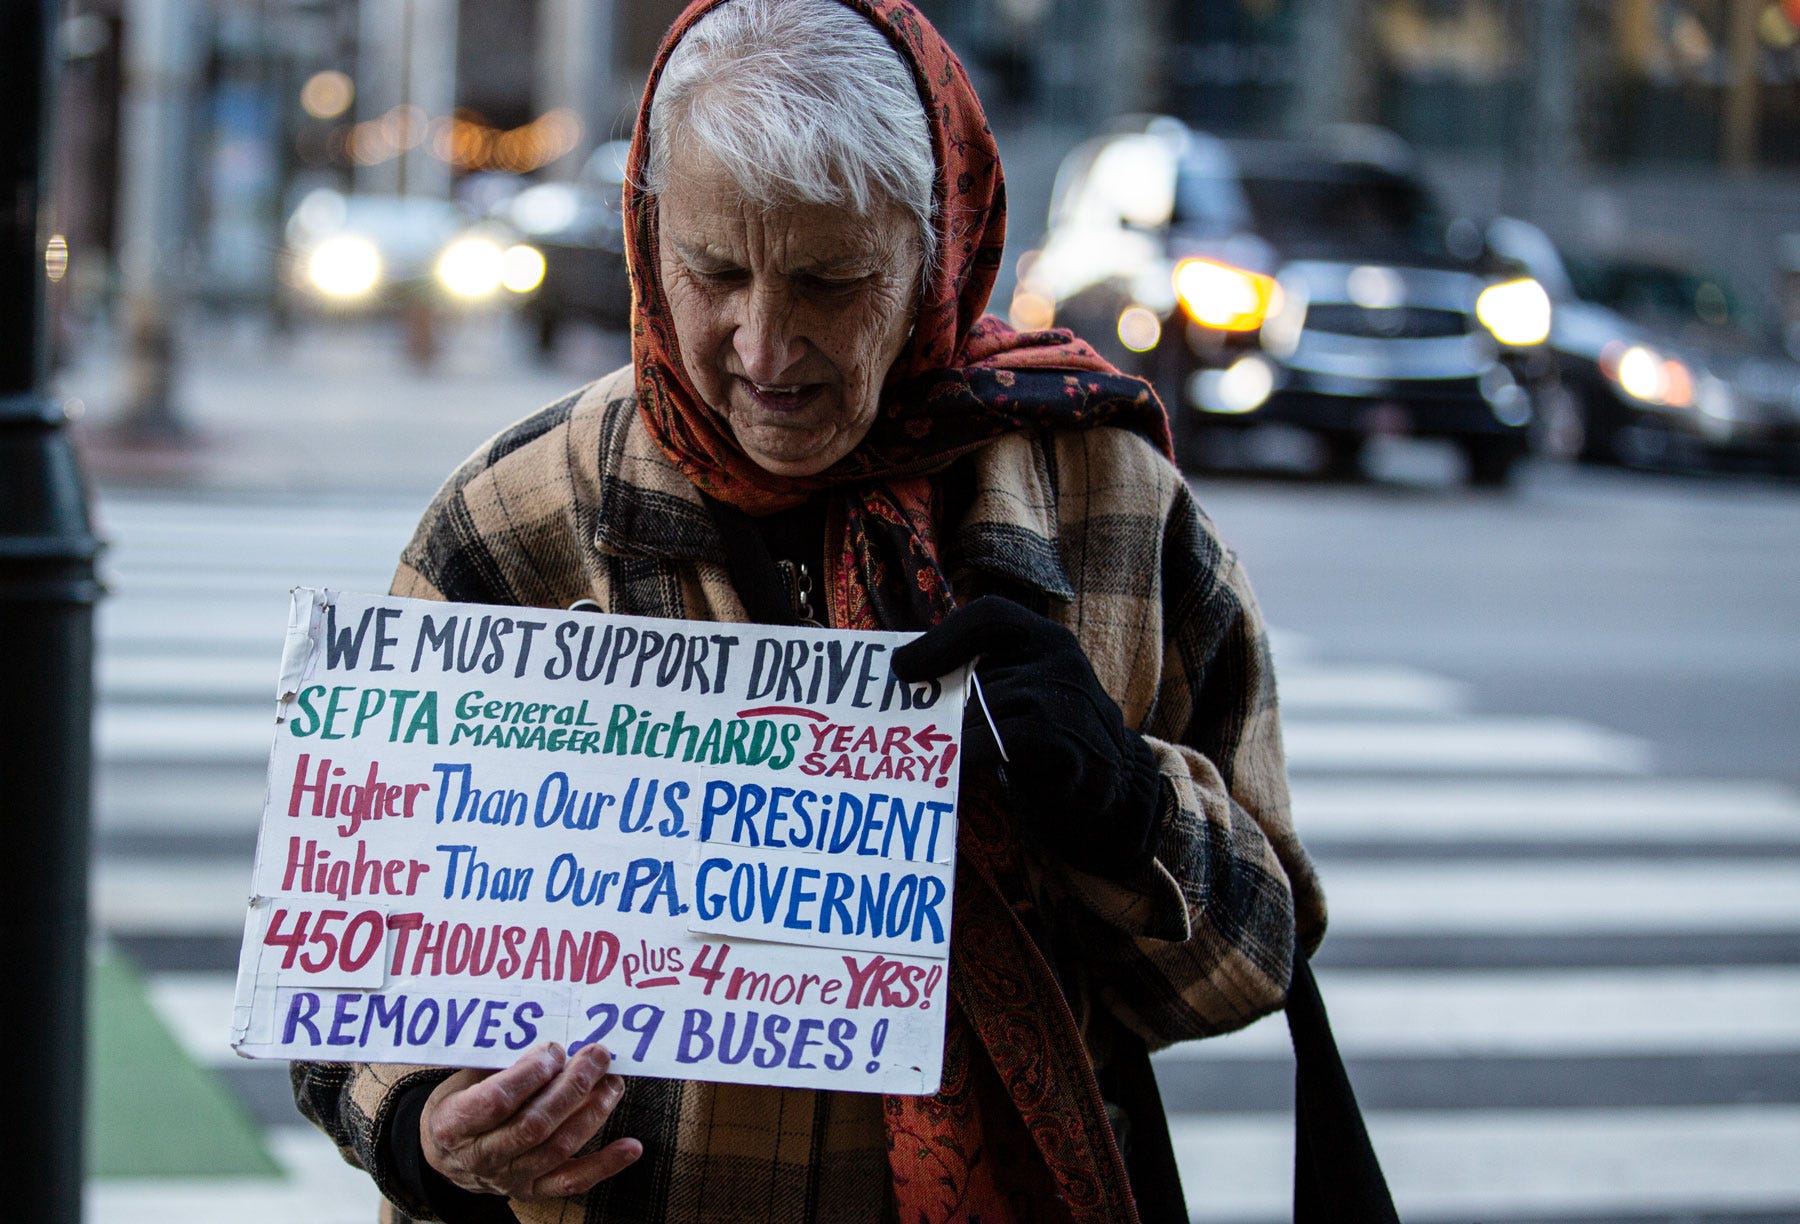 WE MUST SUPPORT DRiVERS
SEPTA General MANAGER RichARDS YEAR ← SALARY!
Higher Than Our U.S. PRESiDENT
Higher Than Our PA. GOVERNOR
450 THOUSAND plus 4 more YRS!
REMOVES 29 BUSES!